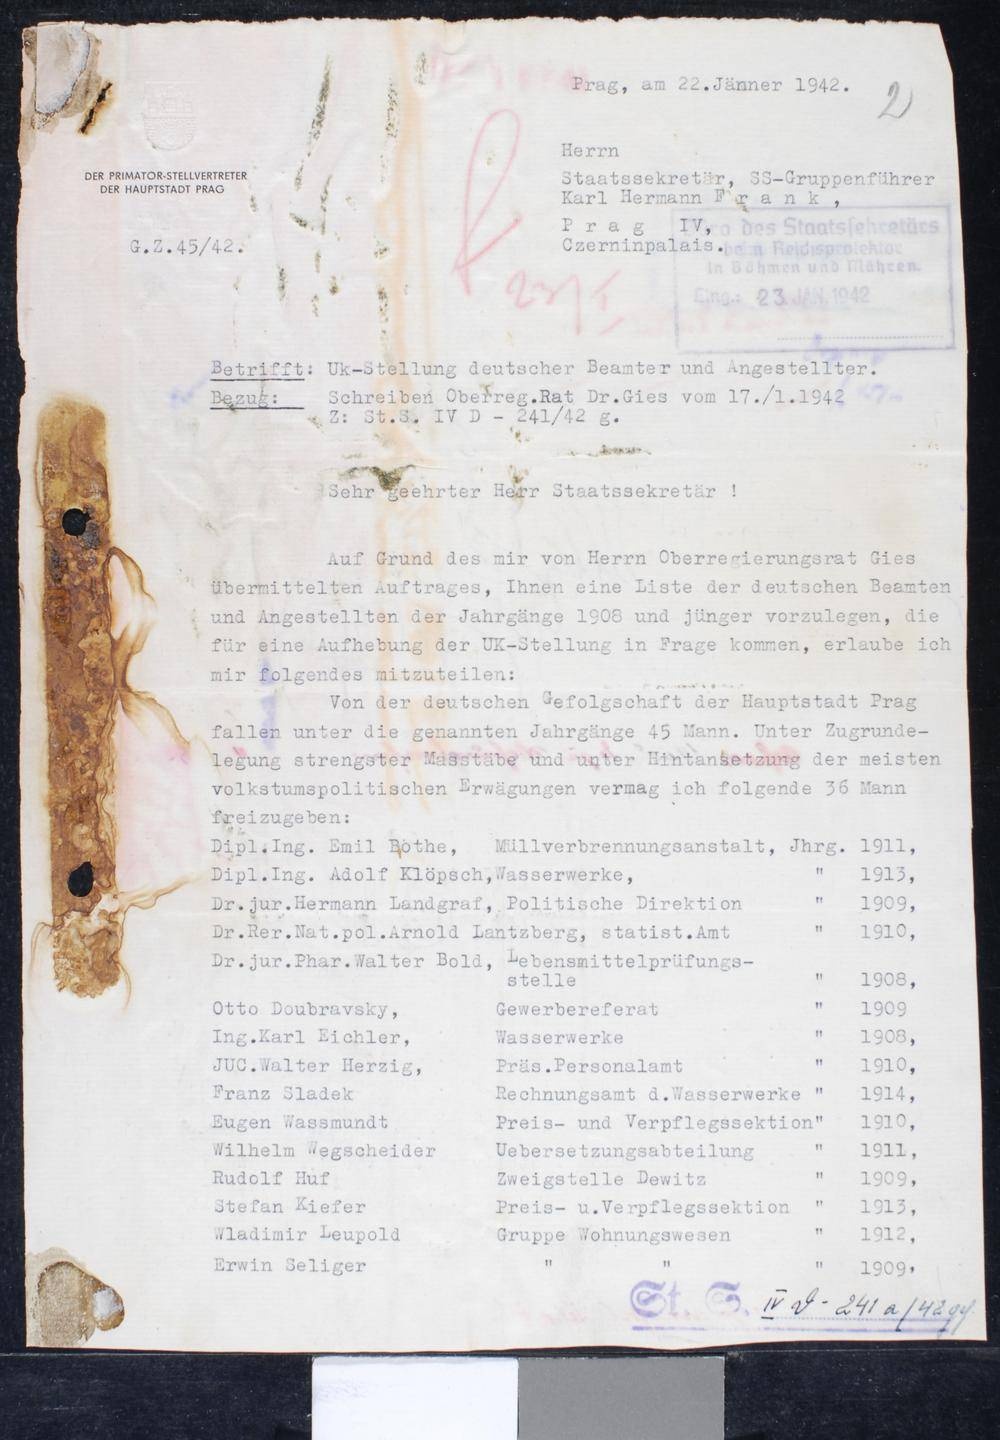 Prag, am 22.Jänner 1942.
2)
DER PRIMATOR-STELLVERTRETER
DER HAUPTSTADT PRAG
G.Z.45/42.
Herrn
Staatssekretär, SS-Gruppenführer
Karl Hermann F r a n k ,
P r a g   IV,
Czerninpalais.
des Staatssekretärs
beim Reichsprotektor
in Böhmen und Mähren.
Eing.: 23. JAN. 1942
23/I
Betrifft: Uk-Stellung deutscher Beamter und Angestellter.
Bezug: Schreiben Oberreg.Rat Dr.Gies vom 17./1.1942
Z: St.S. IV D - 241/42 g.
Sehr geehrter Herr Staatssekretär !
Auf Grund des mir von Herrn Oberregierungsrat Gies
übermittelten Auftrages, Ihnen eine Liste der deutschen Beamten
und Angestellten der Jahrgänge 1908 und jünger vorzulegen, die
für eine Aufhebung der UK-Stellung in Frage kommen, erlaube ich
mir folgendes mitzuteilen:
Von der deutschen Gefolgschaft der Hauptstadt Prag
fallen unter die genannten Jahrgänge 45 Mann. Unter Zugrunde-
legung strengster Masstäbe und unter Hintansetzung der meisten
volkstumspolitischen Erwägungen vermag ich folgende 36 Mann
freizugeben:
Dipl.Ing. Emil Bothe, Müllverbrennungsanstalt, Jhrg. 1911,
Dipl.Ing. Adolf Klöpsch,Wasserwerke, " 1913,
Dr.jur.Hermann Landgraf, Politische Direktion " 1909,
Dr.Rer.Nat.pol.Arnold Lantzberg, statist.Amt " 1910,
Dr.jur.Phar.Walter Bold, Lebensmittelprüfungs-
stelle " 1908,
Otto Doubravsky, Gewerbereferat " 1909
Ing.Karl Eichler, Wasserwerke " 1908,
JUC.Walter Herzig, Präs.Personalamt " 1910,
Franz Sladek Rechnungsamt d.Wasserwerke " 1914,
Eugen Wassmundt Preis- und Verpflegssektion" 1910,
Wilhelm Wegscheider Uebersetzungsabteilung " 1911,
Rudolf Huf Zweigstelle Dewitz " 1909,
Stefan Kiefer Preis- u.Verpflegssektion " 1913,
Wladimir Leupold Gruppe Wohnungswesen " 1912,
Erwin Seliger " " " 1909,
St. S. IV D - 241 a/42 g.